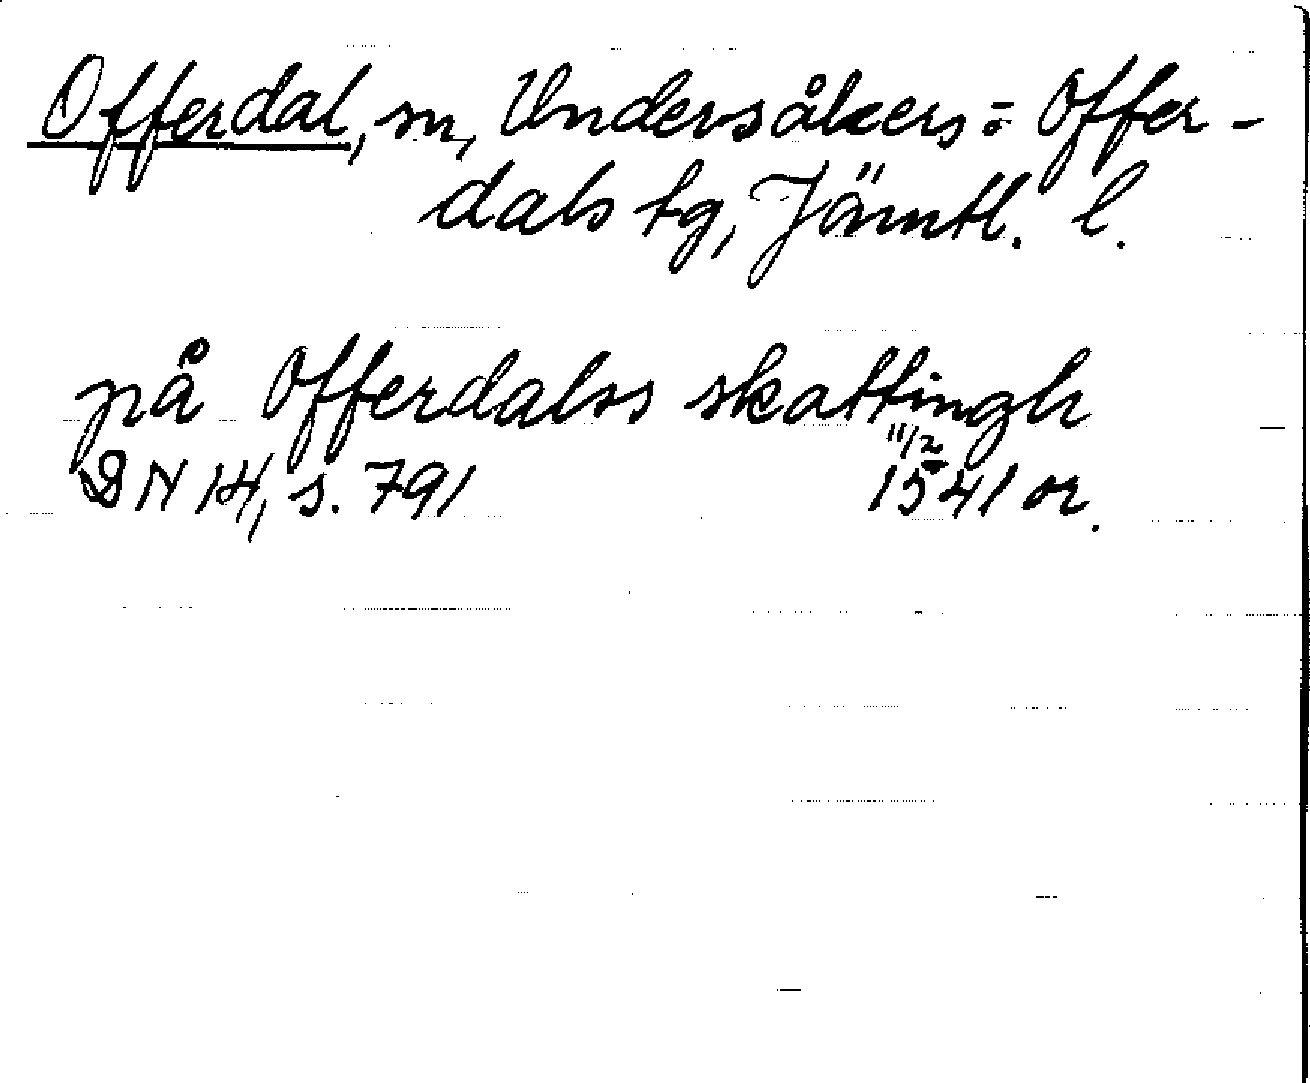 Offerdal, sn, Undersåkers o. Offer-
dals tg, Jämtl. l.
på Offerdalss skattingh
11/2
DN 14, s. 791 1541 or.